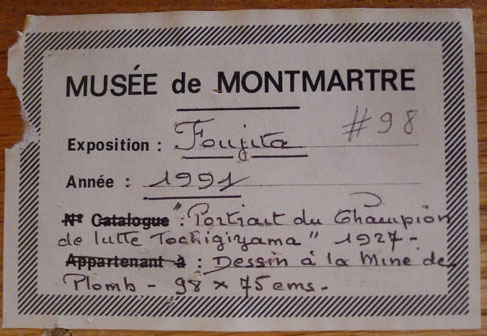 MUSÉE de MONTMARTRE
Exposition : Foujita #98
Année : 1991
N° Catalogue : "Portrait du Champion
de lutte Tochigiyama" 1927-
Appartenant à : Dessin à la Mine de
Plomb - 98 x 75 cms-